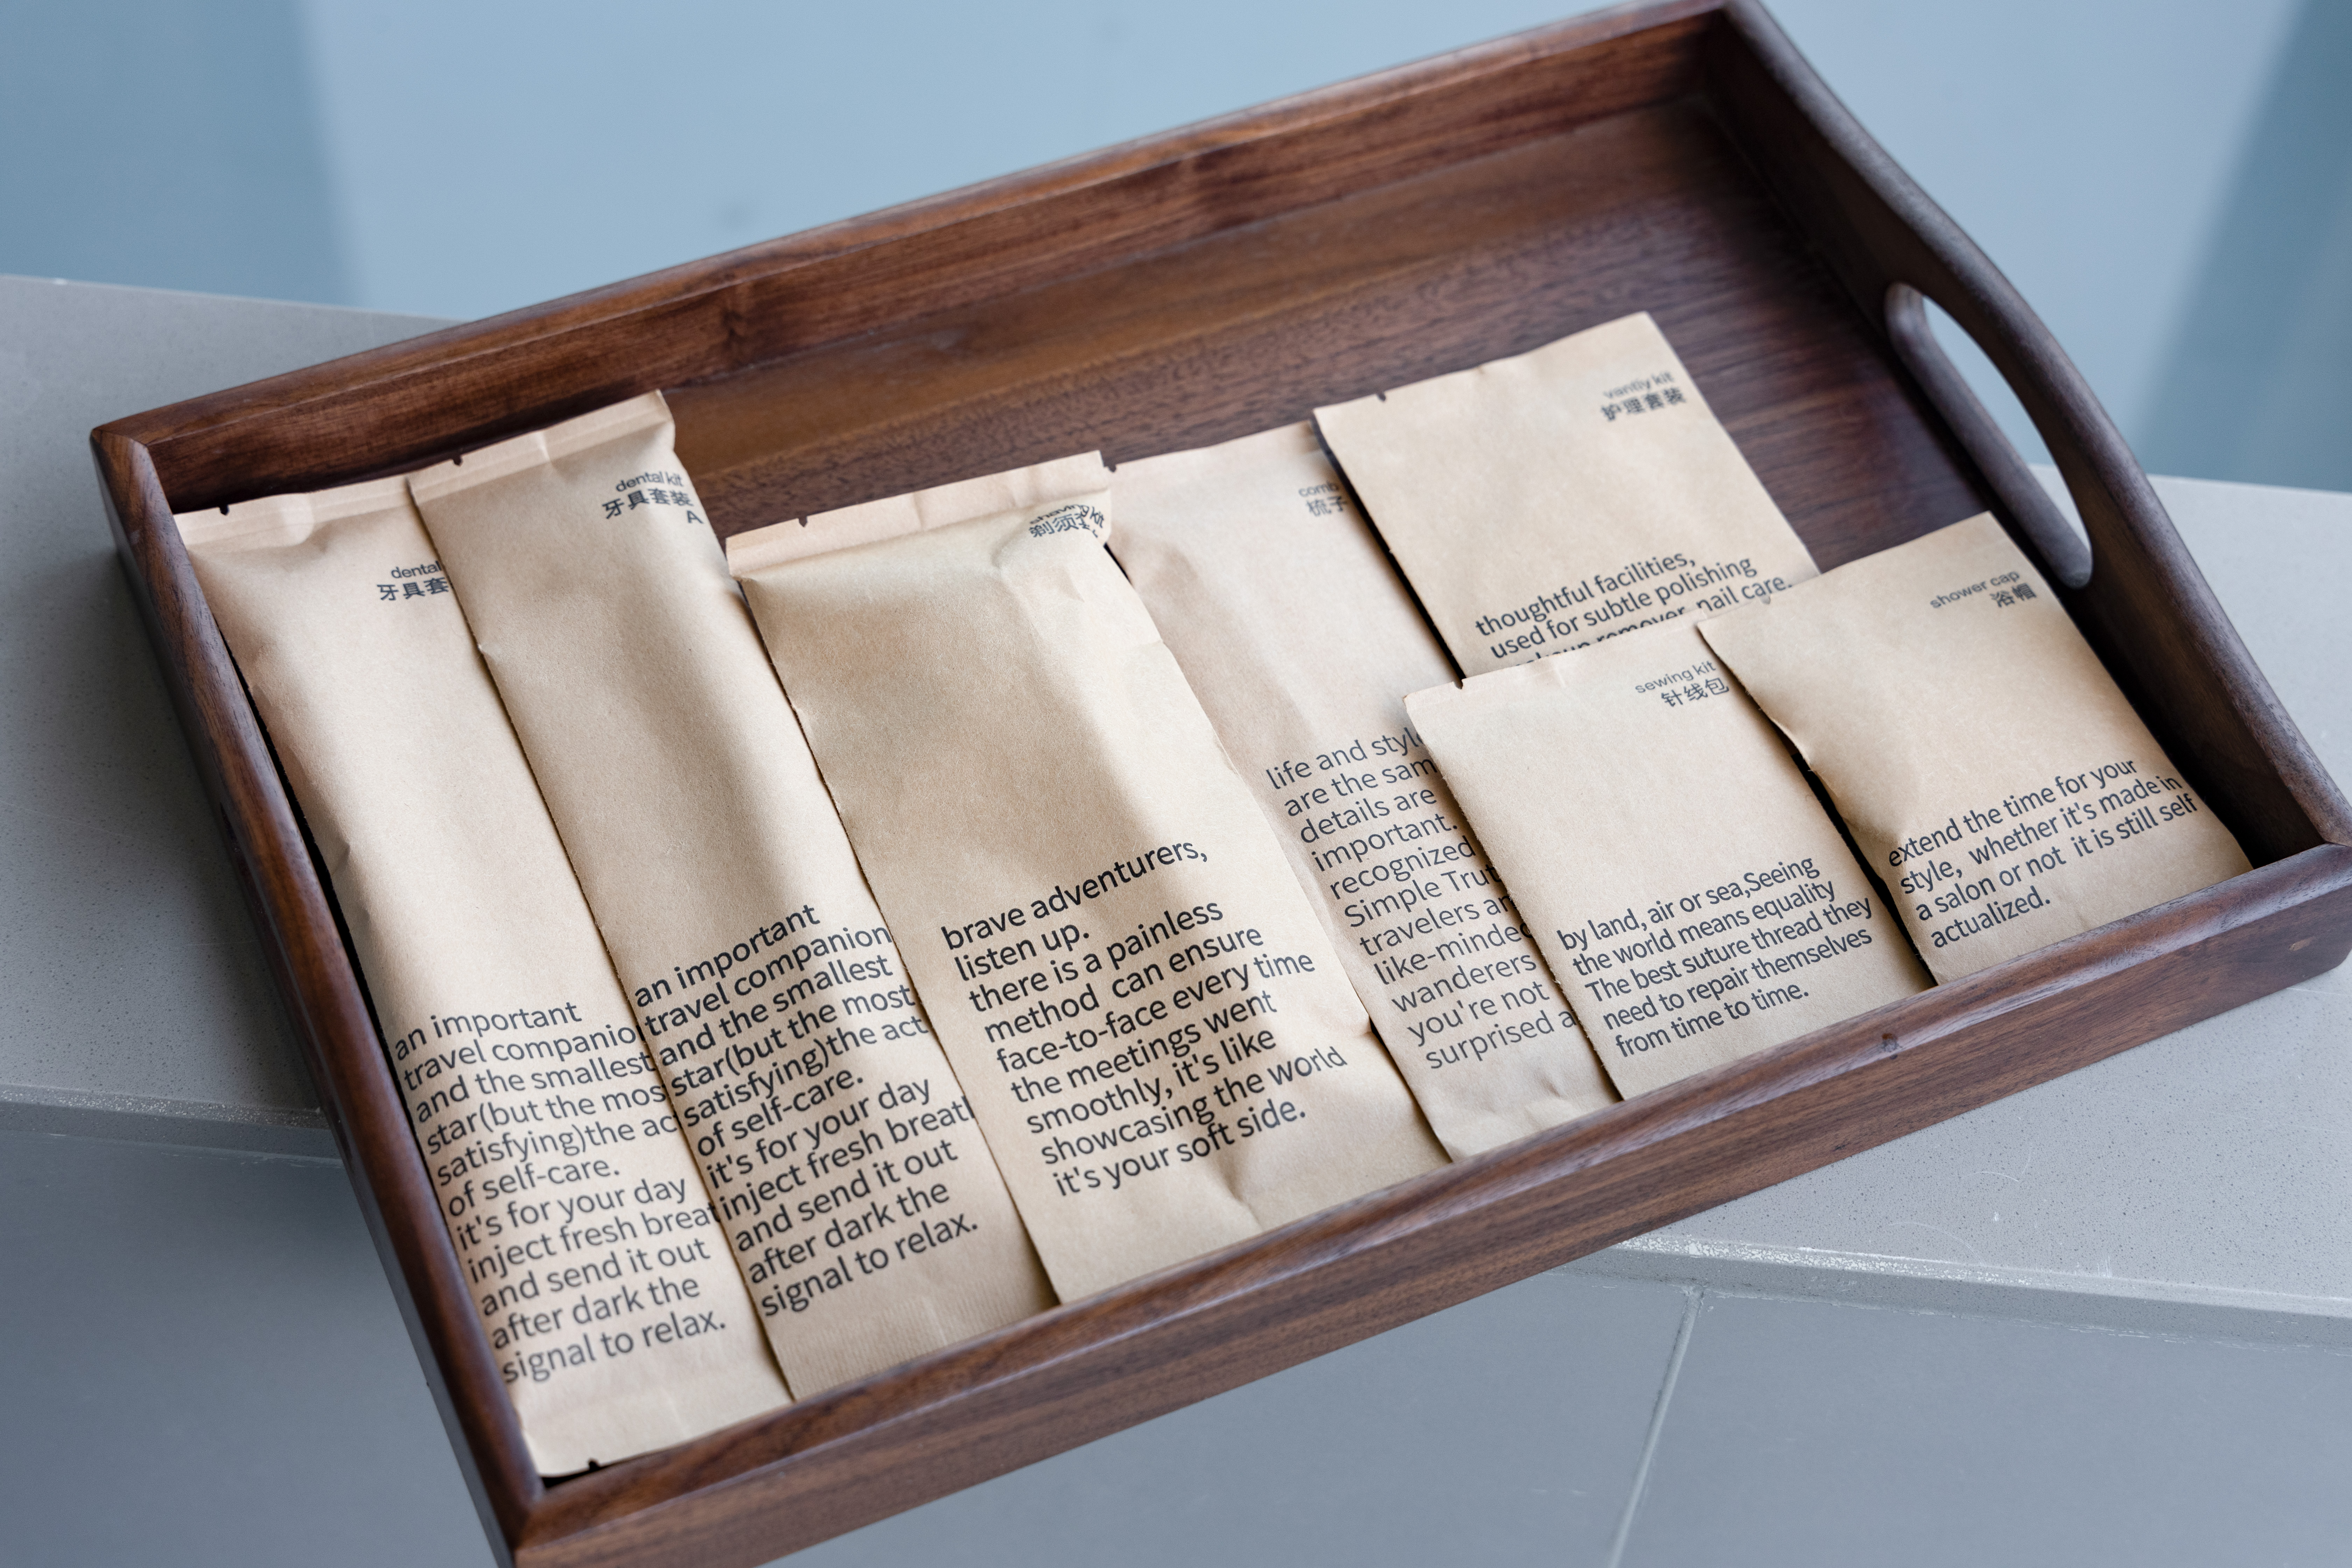 dental
牙具套
an important
travel companio
and the smallest
star(but the mos
satisfying)the ac
of self-care.
it's for your day
inject fresh breat
and send it out
after dark the
signal to relax.
dental kit
牙具套装
A
an important
travel companion
and the smallest
star(but the most
satisfying)the act
of self-care.
it's for your day
inject fresh breath
and send it out
after dark the
signal to relax.
shaving kit
剃须
brave adventurers,
listen up.
there is a painless
method can ensure
face-to-face every time
the meetings went
smoothly, it's like
showcasing the world
it's your soft side.
comb
梳子
life and style
are the sam
details are
important.
recognized
Simple Trut
travelers an
like-minded
wanderers
you're not
surprised a
vantiy kit
护理套装
thoughtful facilities,
used for subtle polishing
remover, nail care.
sewing kit
针线包
by land, air or sea,Seeing
the world means equality
The best suture thread they
need to repair themselves
from time to time.
shower cap
浴帽
extend the time for your
style, whether it's made in
a salon or not it is still self
actualized.